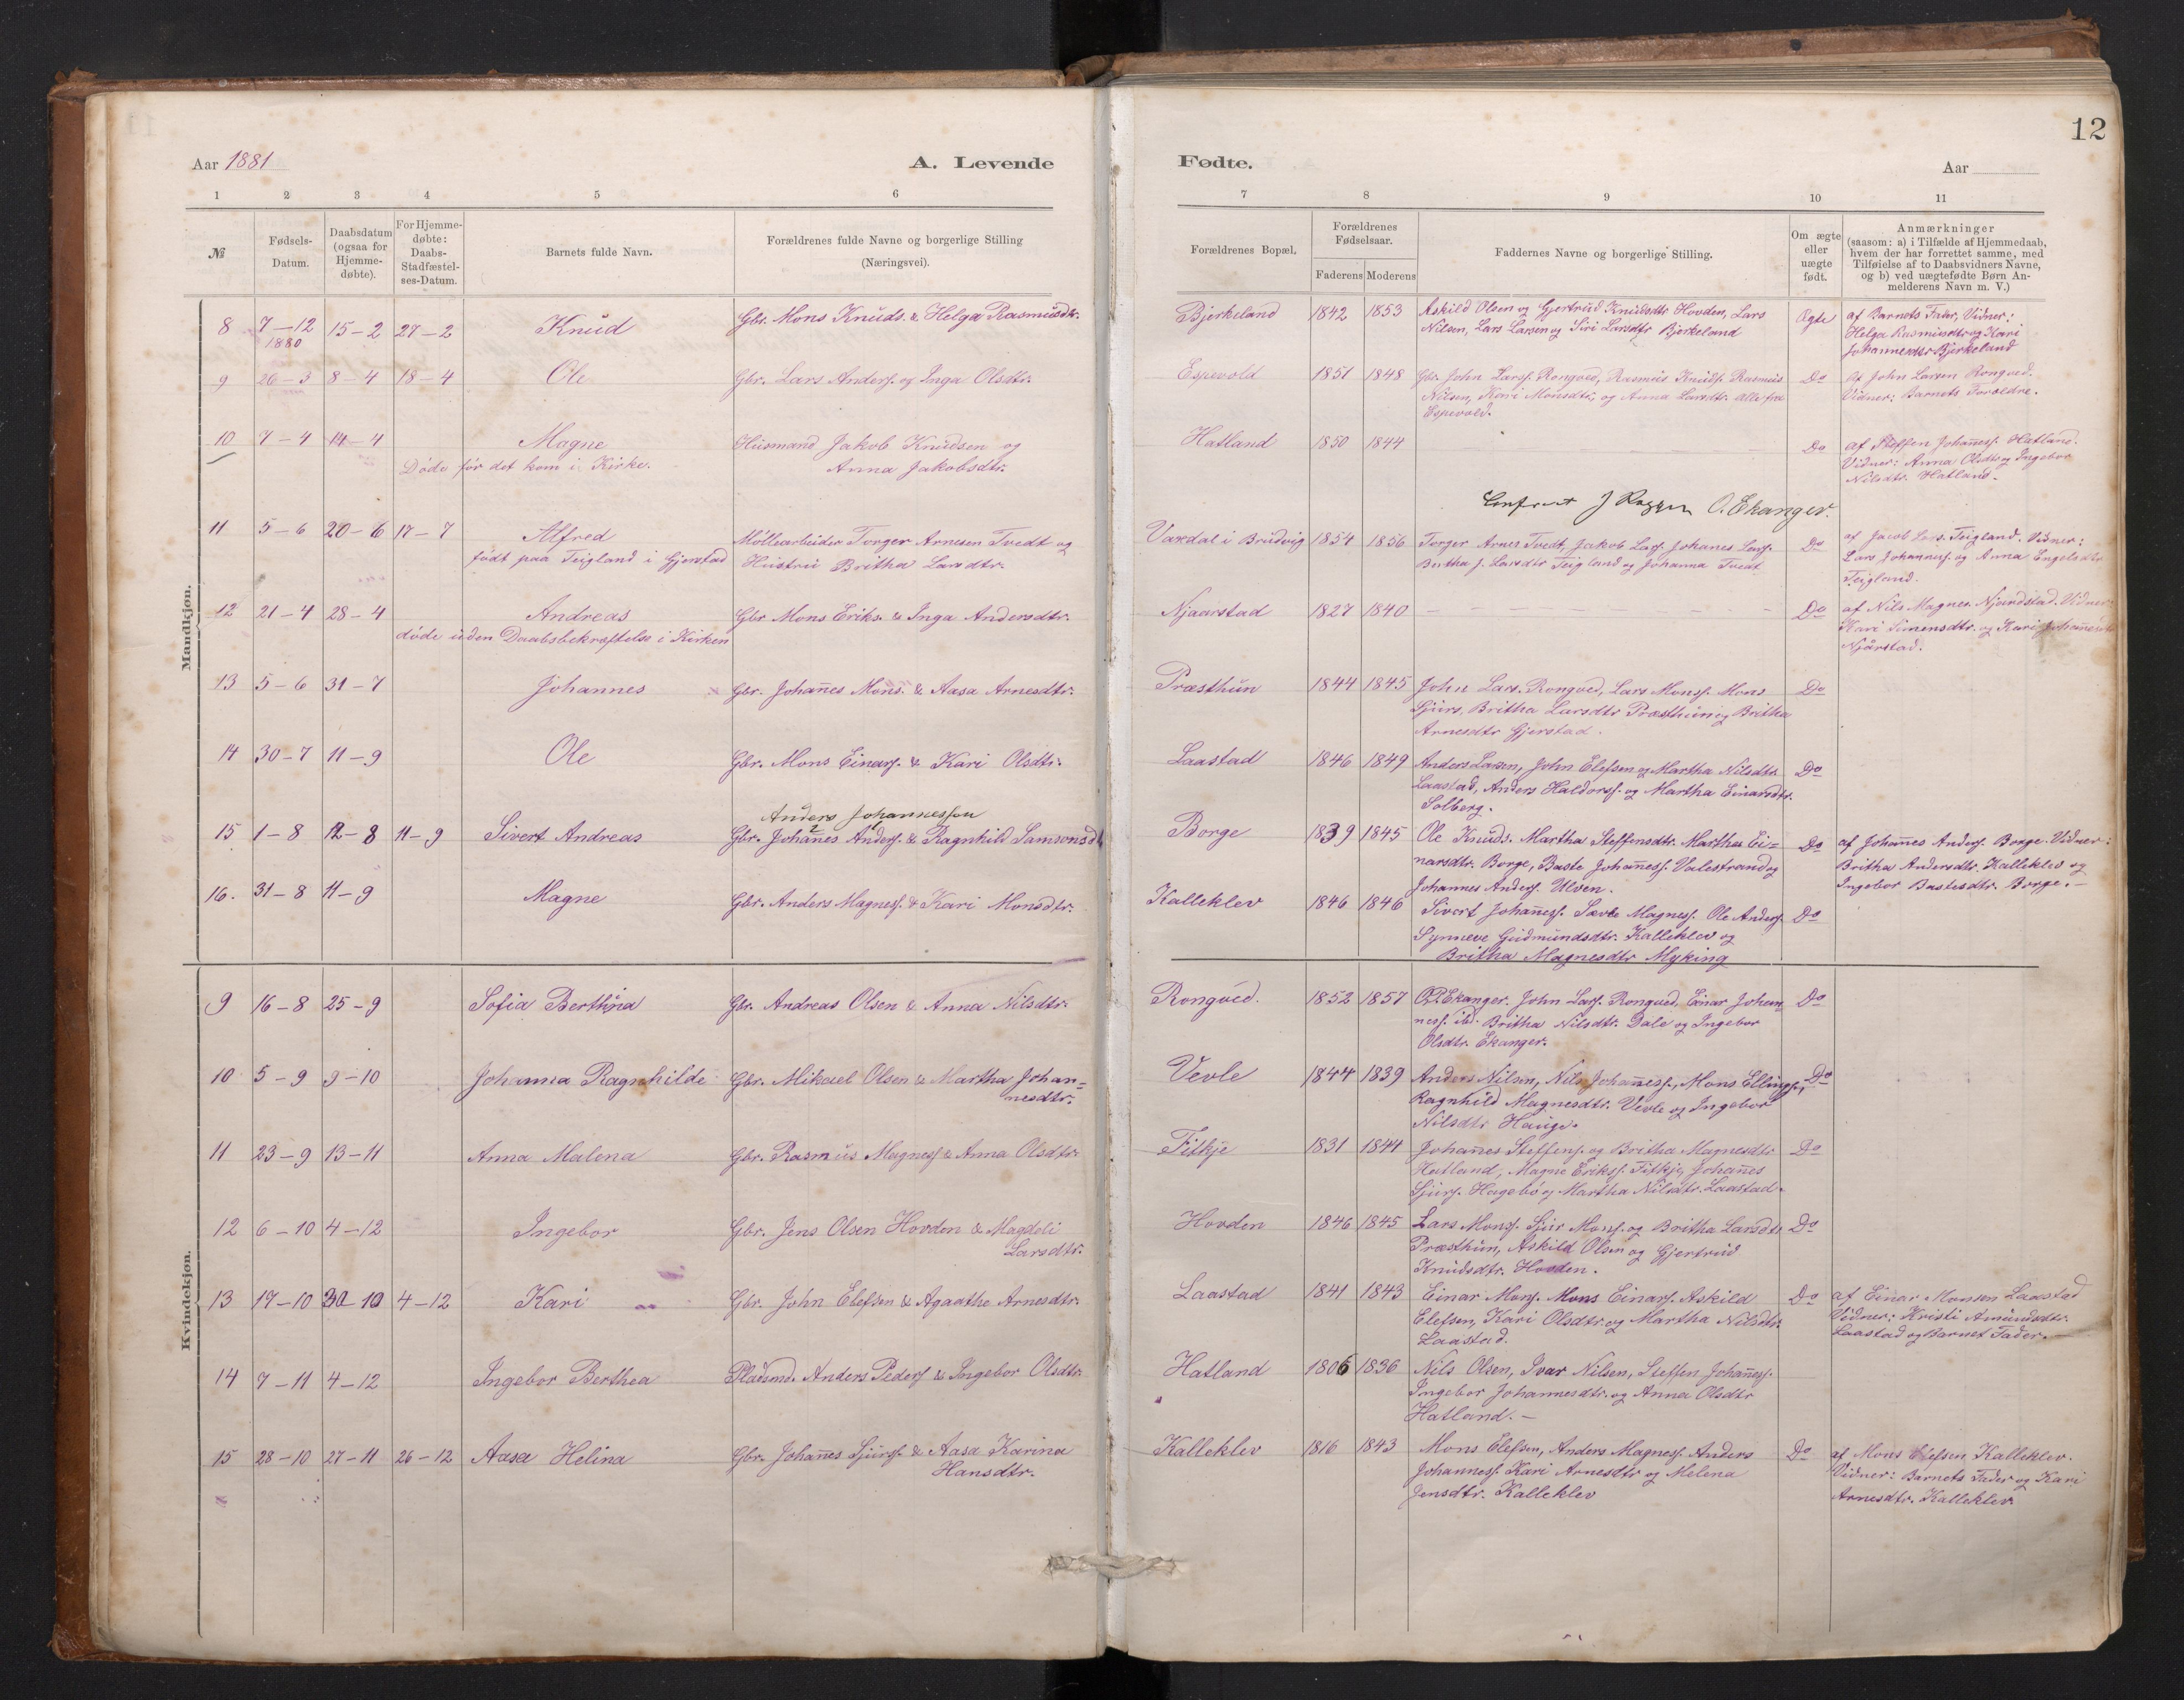 12
Aar 1881 A. Levende Fødte. Aar
1 2 3 4 5 6 7 8 9 10 11
№ Fødsels-Datum. Daabsdatum (ogsaa for Hjemme-døbte). For Hjemme-døbte: Daabs-Stadfæstel-ses-Datum. Barnets fulde Navn. Forældrenes fulde Navne og borgerlige Stilling (Næringsvei). Forældrenes Bopæl. Forældrenes Fødselsaar. Faderens Moderens Faddernes Navne og borgerlige Stilling. Om ægte eller uægte født. Anmærkninger (saasom: a) i Tilfælde af Hjemmedaab, hvem der har forrettet samme, med Tilføielse af to Daabsvidners Navne, og b) ved uægtefødte Børn An-melderens Navn m. V.)
Mandkjøn.
8 7–12 1880 15–2 27–2 Knud Gbr. Mons Knuds. & Helga Rasmusdtr. Bjerkeland 1842 1853 Askild Olsen og Gjertrud Knudsdtr Hovden, Lars Ægte af Barnets Fader, Vidner:
Nilsen, Lars Larsen og Siri Larsdtr Bjerkeland Helga Rasmusdtr og Kari
Johannesdtr Bjerkeland
9 26–3 8–4 18–4 Ole Gbr. Lars Anders. og Inga Olsdtr. Espevold 1851 1848 Gbr. John Larss. Rongved, Rasmus Knuds. Rasmus Do af John Larsen Rongved.
Nilsen, Kari Monsdtr, og Anna Larsdtr. alle fra Vidner: Barnets Forældre.
Espevold.
10 7–4 14–4 Magne Husmand Jakob Knudsen og Hatland 1850 1844 Do af Steffen Johaness. Hatland.
Døde før det kom i Kirke. Anna Jakobsdtr. Vidner: Anna Olsdtr og Ingebor
Nilsdtr. Hatland.
O. Ekanger.
11 5–6 20–6 17–7 Alfred Møllearbeider Torger Arnesen Tvedt og Vaxdal i Brudvig 1854 1856 Torger Arnes Tvedt, Jakob Lars. Johanes Lars. Do af Jacob Lars. Teigland. Vidner:
født paa Teigland i Gjerstad Hustru Britha Larsdtr. Britha J. Larsdtr Teigland og Johanna Tvedt Lars Johanness. og Anna Engelsdtr
Teigland.
12 21–4 28–4 Andreas Gbr Mons Eriks. & Inga Andersdtr. Njaarstad 1827 1840 Do af Nils Magnes. Njaarstad. Vidner:
døde uden Daabsbekræftelse i Kirken Kari Simensdtr. og Kari Johanesdtr
Njårstad.
13 5–6 31–7 Johannes Gbr. Johanes Mons. & Aasa Arnesdtr. Præsthun 1844 1845 John Lars. Rongved, Lars Monss. Mons Do
Sjurs, Britha Larsdtr Præsthun og Britha
Arnesdtr Gjerstad.
14 30–7 11–9 Ole Gbr. Mons Einars. & Kari Olsdtr. Laastad 1846 1849 Anders Larsen, John Elefsen og Martha Nilsdtr Do
Laastad, Anders Haldorss. og Martha Einarsdtr.
Solberg.
Anders Johannessen
15 1–8 12–8 11–9 Sivert Andreas Gbr. Johanes Anders. & Ragnhild Samsonsdtr Borge 1839 1845 Ole Knuds. Martha Steffensdtr. Martha Ei= Do af Johannes Anders. Borge. Vidner:
narsdtr. Borge, Baste Johaness. Valestrand og Britha Andersdtr. Kalleklev og
Johannes Anders. Ulven. Ingebor Bastesdtr. Borge.
16. 31–8 11–9 Magne Gbr. Anders Magness. & Kari Monsdtr. Kalleklev 1846 1846 Sivert Johaness. Sævle Magness. Ole Anders. Do
Synneve Gudmundsdtr. Kalleklev og
Britha Magnesdtr Myking
Kvindekjøn.
9 16–8 25–9 Sofia Berthina Gbr. Andreas Olsen & Anna Nilsdtr. Rongved. 1852 1857 O.P. Ekanger. John Lars. Rongved, Einar Johan Do
ness. ibd. Britha Nilsdtr. Dale og Ingebor
Olsdtr. Ekanger.
10 5–9 9–10 Johanna Ragnhilde Gbr. Mikael Olsen & Martha Johan= Vevle 1844 1839 Anders Nilsen, Nils Johaness., Mons Ellings., Do
nesdtr. Ragnhild Magnesdtr. Vevle og Ingebor
Nilsdtr Hauge.
11 23–9 13–11 Anna Malena Gbr. Rasmus Magness & Anna Olsdtr. Fitkje 1831 1844 Johanes Steffens. og Britha Magnesdtr Do
Hatland, Magne Erikss. Fitkje, Johanes
Sjurs. Hagebø og Martha Nilsdtr. Laastad.
12 6–10 4–12 Ingebor Gbr. Jens Olsen Hovden & Magdeli Hovden 1846 1845 Lars Monss. Sjur Monss. og Britha Larsdtr Do
Larsdtr. Præsthun, Askild Olsen og Gjertrud
Knudsdtr. Hovden.
13 17–10 30–10 4–12 Kari Gbr. John Elefsen & Agaathe Arnesdtr. Laastad 1841 1843 Einar Mons. Mons Einars. Askild Do af Einar Monsen Laastad
Elefsen, Kari Olsdtr. og Martha Nilsdtr. Vidner: Kristi Amundsdtr.
Laastad. Laastad og Barnet Fader.
14 7–11 4–12 Ingebor Berthea Pladsmd. Anders Peders & Ingebor Olsdtr. Hatland 1806 1836 Nils Olsen, Ivar Nilsen, Steffen Johaness.
Ingebor Johannesdtr. og Anna Olsdtr
Hatland.
15 28–10 27–11 26–12 Aasa Helina Gbr. Johanes Sjurs. & Aasa Karina Kalleklev 1816 1843 Mons Elefsen, Anders Magness. Anders Do af Mons Elefsen Kalleklev.
Hansdtr. Johanness. Kari Arnesdtr og Melena Vidner: Barnets Fader og Kari
Jensdtr. Kalleklev Arnesdtr. Kalleklev